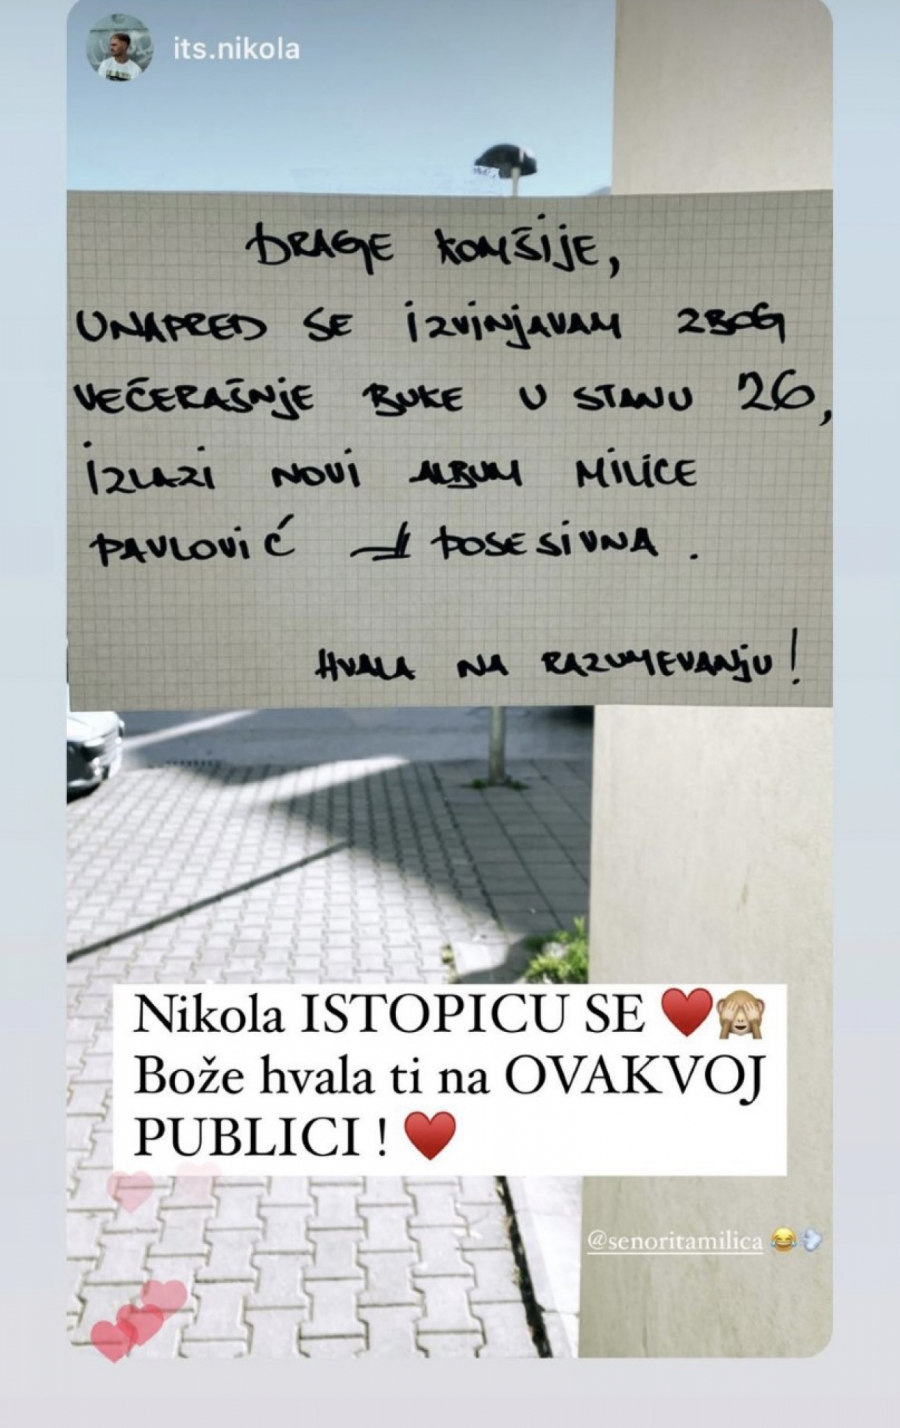 its.nikola
DRAGE KOMŠIJE,
UNAPRED SE IZVINJAVAM ZBOG
VEČERAŠNJE BUKE U STANU 26,
IZLAZI NOVI ALBUM MILICE
PAVLOVIĆ - POSESIVNA.
HVALA NA RAZUMEVANJU!
Nikola ISTOPICU SE ❤️🙈
Bože hvala ti na OVAKVOJ
PUBLICI ! ❤️
@senoritamilica 😂💨